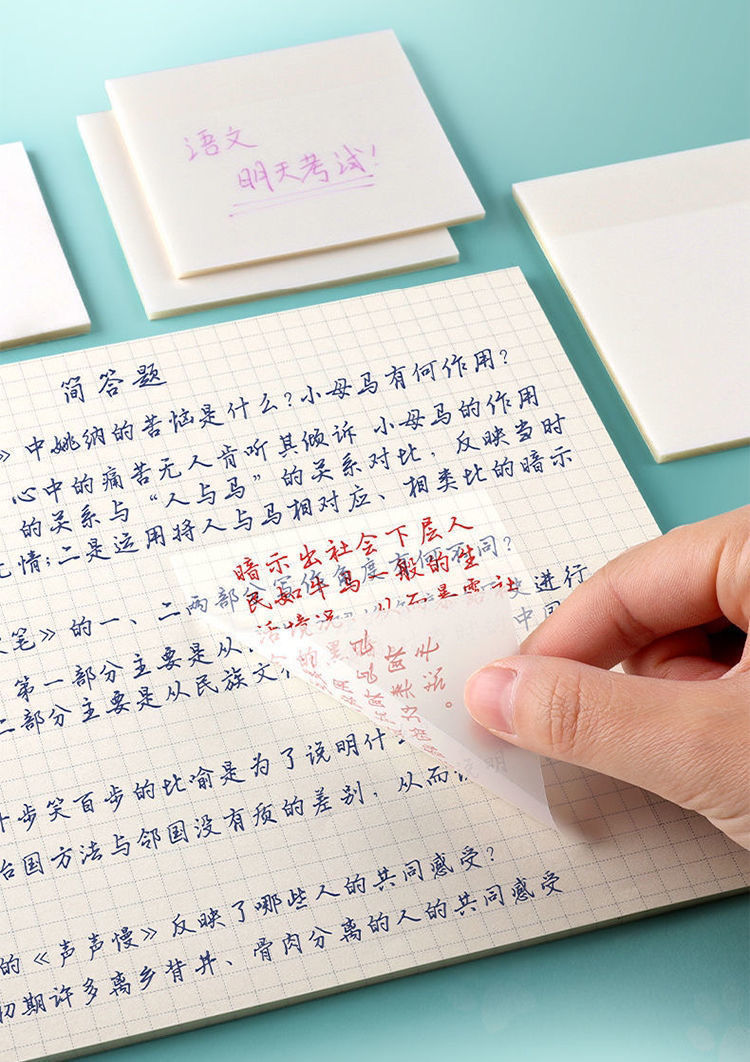 语文
明天考试!
简答题
》中姚纳的苦恼是什么?小母马有何作用?
心中的痛苦无人肯听其倾诉 小母马的作用
的关系与“人与马”的关系对比,反映当时
无情;二是运用将人与马相对应、相类比的暗示
暗示出社会下层人
民如牛马一般的生
活境况,从而暴露社
笔》的一、二两部分写作角度有何不同?
第一部分主要是从 史进行
二部分主要是从民族文
十步笑百步的比喻是为了说明什
治国方法与邻国没有质的差别,从而说明
的《声声慢》反映了哪些人的共同感受?
初期许多离乡背井、骨肉分离的人的共同感受